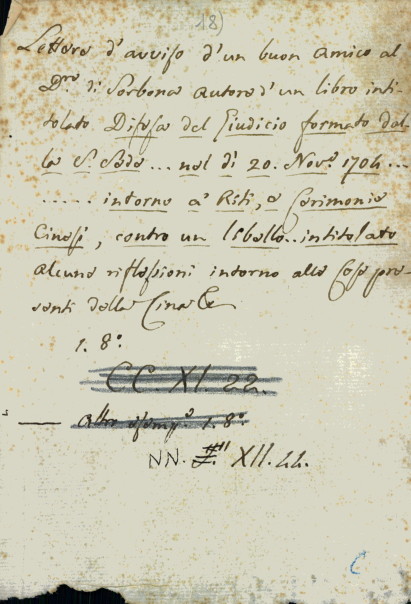 18)
Lettera d'avviso d'un buon amico al
Dre. di Sorbona autore d'un libro inti-
tolato Difesa del Giudicio formato dal-
la S. Sede ... nel dì 20. Nove. 1704 ...
...... intorno a' Riti, e Cerimonie
Cinesi, contro un libello.. intitolato
alcune riflessioni intorno alle Cose pre-
senti della Cina &
1. 8°.
CC XI. 22.
— Altro esempe. 1. 8°
NN. XII. 44.
C